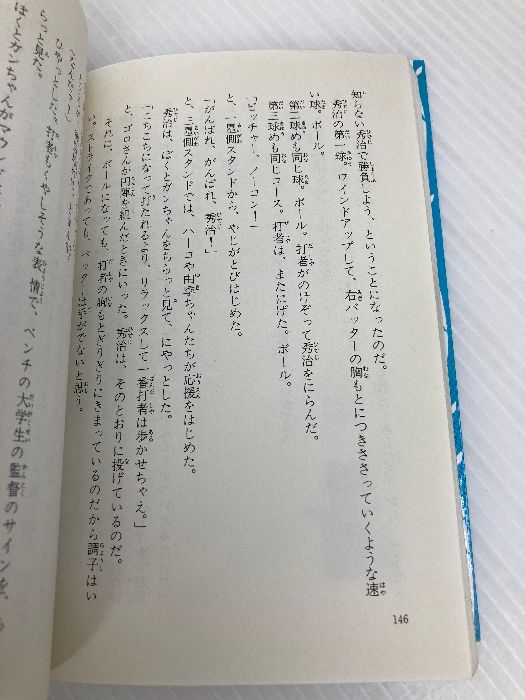 知らない秀治で勝負しよう、ということになったのだ。
秀治の第一球。ワインドアップして、右バッターの胸もとにつきささっていくような速
い球。ボール。
第二球めも同じ球。ボール。打者がのけぞって秀治をにらんだ。
第三球めも同じコース。打者は、またにげた。ボール。
「ピッチャー、ノーコン!」
と、一塁側スタンドから、やじがとびはじめた。
「がんばれ、がんばれ、秀治!」
と、三塁側スタンドでは、ハーコや由季ちゃんたちが応援をはじめた。
秀治は、ぼくとガンちゃんをちらっと見て、にやっとした。
「こちこちになって打たれるより、リラックスして一番打者は歩かせちゃえ。」
と、ゴロさんが円陣を組んだときにいった。秀治は、そのとおりに投げているのだ。
それに、ボールになっても、打者の胸もとぎりぎりにきまっているのだから調子はい
い。ストライクであっても、バッターは手がでないと思う。
146
ひやっとした。打者もくやしそうな表情で、ベンチの大学生の監督のサインを、
らっと見た。
ぼくとガンちゃんがマウンド